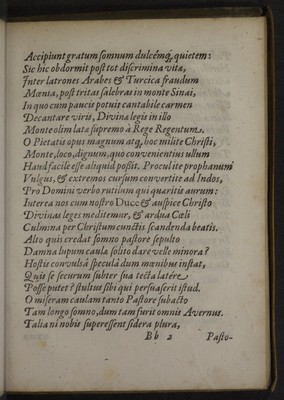 Accipiunt gratum somnum dulcémq́, quietem:
Sic hic obdormit post tot discrimina vitæ,
Inter latrones Arabes & Turcica fraudum
Mœnia, post tritas salebras in monte Sinai,
In quo cum paucis potuit cantabile carmen
Decantare viris, Divina legis in illo
Monte olim lata supremo à Rege Regentum.
O Pietatis opus magnum atq́, hoc milite Christi,
Monte, loco, dignum, quo convenientius ullum
Haud facilè esse aliquid possit. Procul ite prophanum
Vulgus, & extremos cursum convertite ad Indos,
Pro Domini verbo rutilum qui quæritis aurum:
Interea nos cum nostro Duce & auspice Christo
Divinas leges meditemur, & ardua Cœli
Culmina per Christum cunctis scandenda beatis.
Alto quis credat somno pastore sepulto
Damna lupum caulæ solito dare velle minora?
Hostis convulsâ speculâ dum mœnibus instat,
Quis se securum subter sua tecta latere
Posse putet? stultus sibi qui persuaserit istud.
O miseram caulam tanto Pastore subacto
Tam longo somno, dum tam furit omnis Avernus.
Talia ni nobis superessent sidera plura,
Bb 2 Pasto-